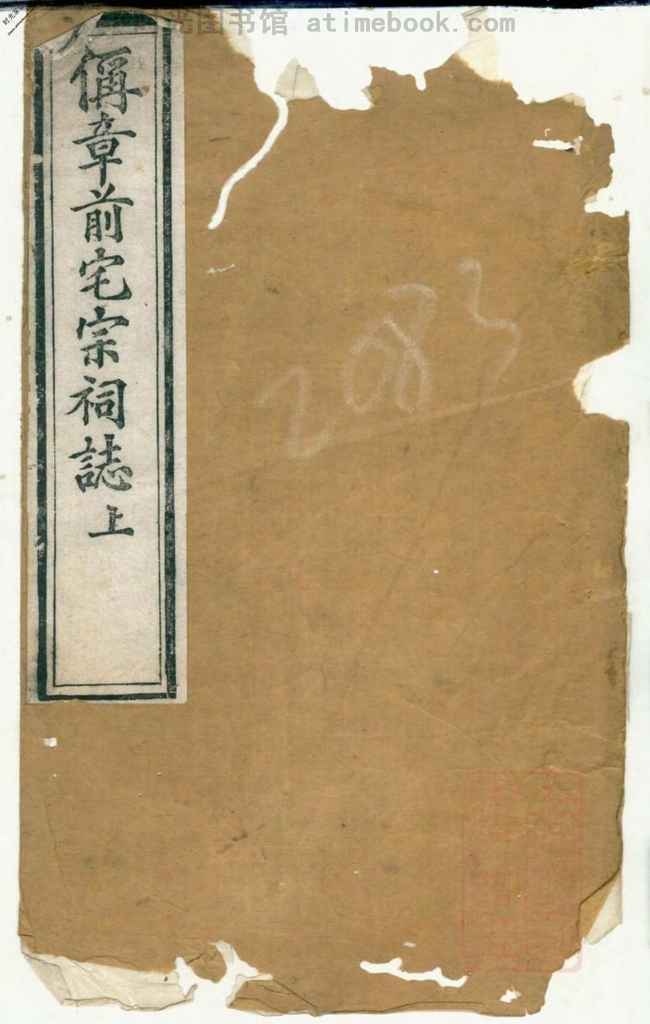 书馆 atimebook.com
偁章前宅宗祠誌上
2083